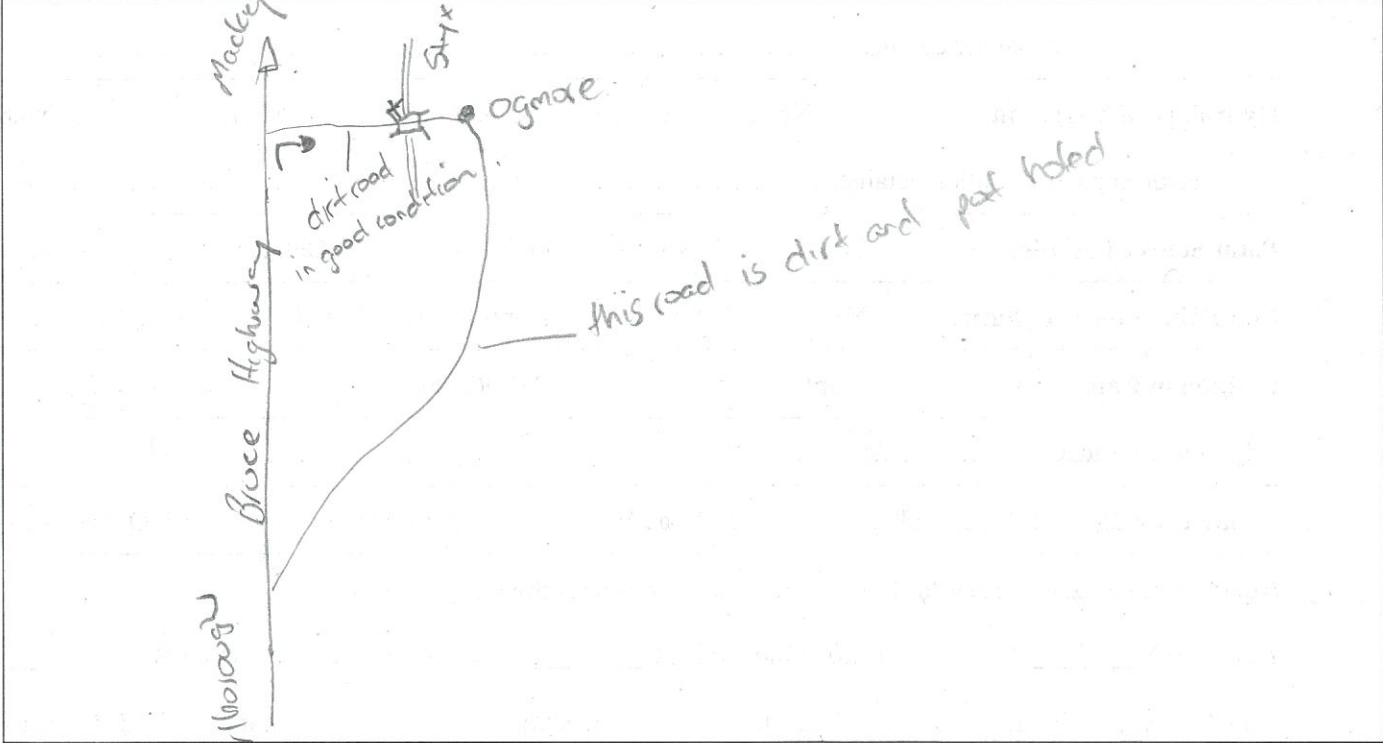 Mackey
Styx
Ogmore
dirt road
in good condition
this road is dirt and pot holed
Bruce Highway
lborough